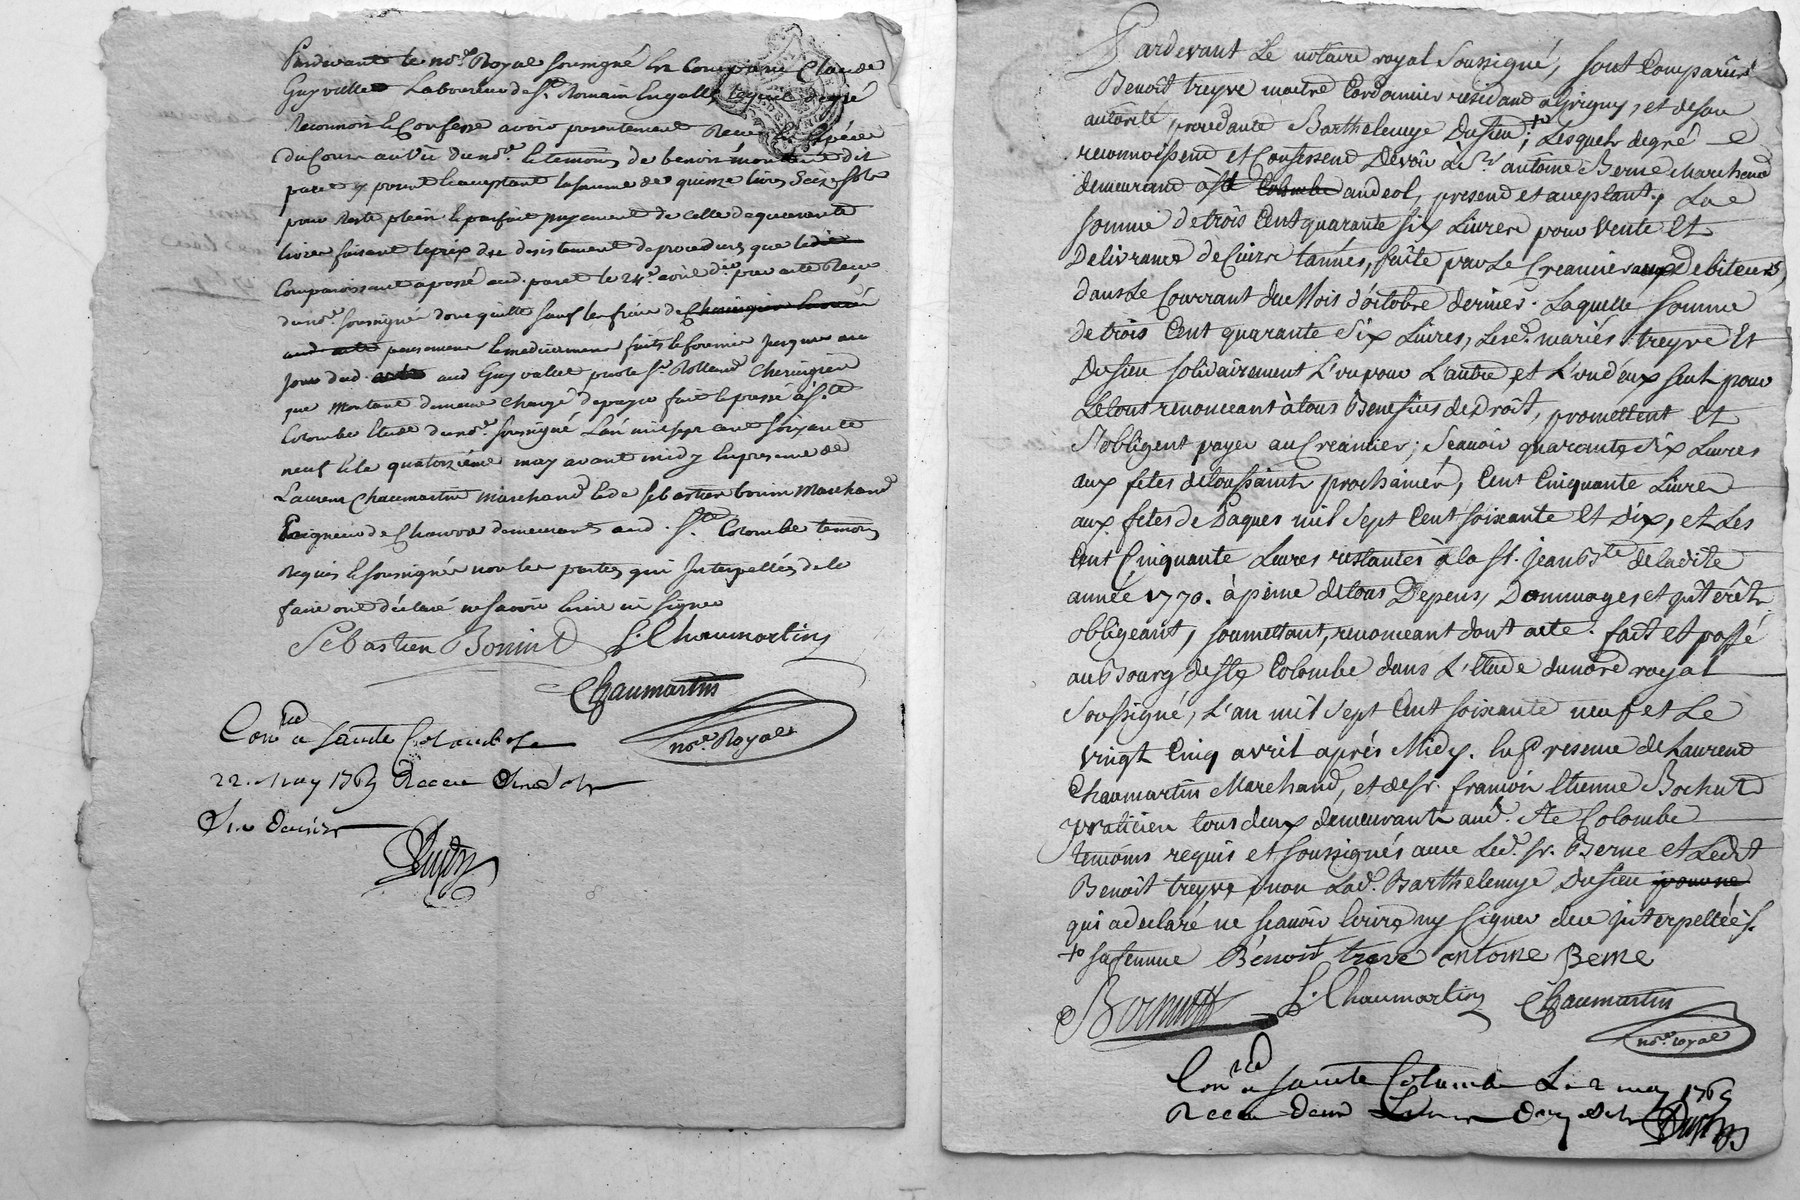 Pardevant le no.re Royal soussigné est comparu Claude
Guyvallet Laboureur de St. Romain Engalle, lequel degré
Reconnoit & Confesse avoir presentement Receu en Espèces
du Cours au Vû du no.re & temoins de benoit
pour & acceptant la somme de quinze livres Seize sols
pour Reste plein & parfait payement de celle de quarante
livres faisant le prix de desistement de procedures que ledit
Comparoissant a passé aud. le 24e. avril d.er par acte Receu
du no.re soussigné donc quitte sauf les frais de
pansemens & medicamens faits & fournis jusques au
jour dud. aud. Guyvallet par le Sr. Rolland Chirurgien
que Montant demeure chargé de payer fait & passé à Ste.
Colombe Etude du no.re soussigné L'an mil sept cent soixante
neuf & le quatorzième may avant midy En presence de
Laurent Chaumartin marchand & de sebastien bonin Marchand
Peigneur de Chanvre demeurants aud. Ste. Colombe temoins
Requis & soussignés non les parties qui Interpellées de le
faire ont déclaré ne savoir Ecrire ni signer
Sebastien Bonin L. Chaumartin
Chaumartin
no.re Royal
Con.lé a Sainte Colombe le
22. may 1769 Receu
Six deniers
Pardevant Le notaire royal Soussigné, sont Comparûs
Benoit treyve maitre Cordonnier residant a Grigny, et de son
autorité procedante Barthelemye Dusieu; +o Lesquels degré
reconnoissent et Confessent Devoir à Sr. antoine Berne Marchand
demeurant à St. Colombe andeol, present et acceptant, La
somme de trois Cent quarante six Livres pour Vente Et
Delivrance de Cuirs tannés, faite par Le Creancier aux Debiteurs,
dans Le Courrant du Mois d'octobre dernier. Laquelle somme
de trois Cent quarante Six Livres, Lesd. mariés treyve Et
Dusieu solidairement L'un pour L'autre et L'un d'eux seul pour
Le tout renonceant à tous Benefices de Droit, promettent Et
S'obligent payer au Creancier; Scavoir quarante Six Livres
aux fêtes de toussaints prochaines, Cent Cinquante Livres
aux fetes de Paques mil Sept Cent soixante Et Dix, et Les
Cent Cinquante Livres restantes à la St. jean Bte. de la dite
année 1770. à peine de tous Depens, Dommages et intérêts
obligeant, soumettant, renonceant dont acte. fait et passé
au Bourg de Ste Colombe dans L'Etude du no.re royal
Soussigné, L'an mil Sept Cent soixante neuf et Le
vingt Cinq avril après Midy. En presence de Laurend
Chaumartin Marchand, et de sr. francois Etienne Bochard
praticien tous deux demeurants aud. Ste Colombe
temoins requis et soussignés avec Led. sr. Berne et Ledit
Benoit treyve, non Lad. Barthelemye Dusieu
qui a declaré ne scavoir Ecrire ny signer de ce interpellée.
+o sa femme Bénoit treve antoine Berne
L. Chaumartin Chaumartin
no.re royal
Con.lé a Sainte Colombe Le 2 may 1769
Receu